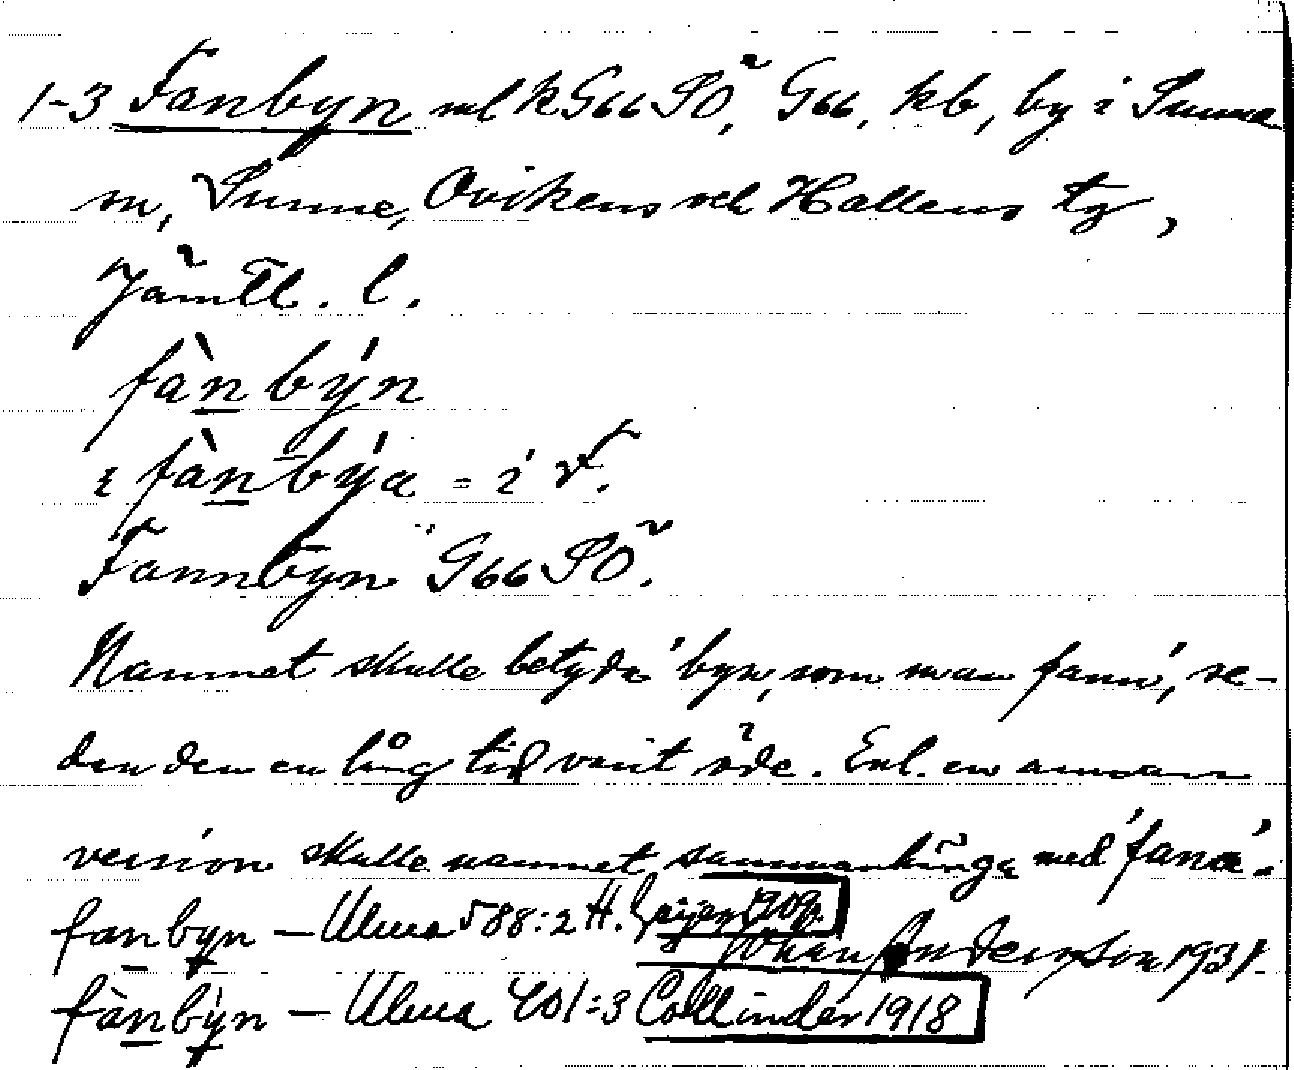 1-3 Fanbyn ml k G66 SO, G66, kb, by i Sunne
sn, Sunne, Ovikens och Hallens tg,
Jämtl. l.
fàn býn
ɩ fàn býa = i F.
Fannbyn G66 SO.
Namnet skulle betyda 'byn, som man fann', se-
dan den en lång tid varit öde. Enl. en annan
version skulle namnet sammanhänga med 'fana'.
fanbyn – Uluma 588:2 H. Geijer 1909.
Johan Anderson 1931.
fànbýn – Uluma 401:3 Collinder 1918